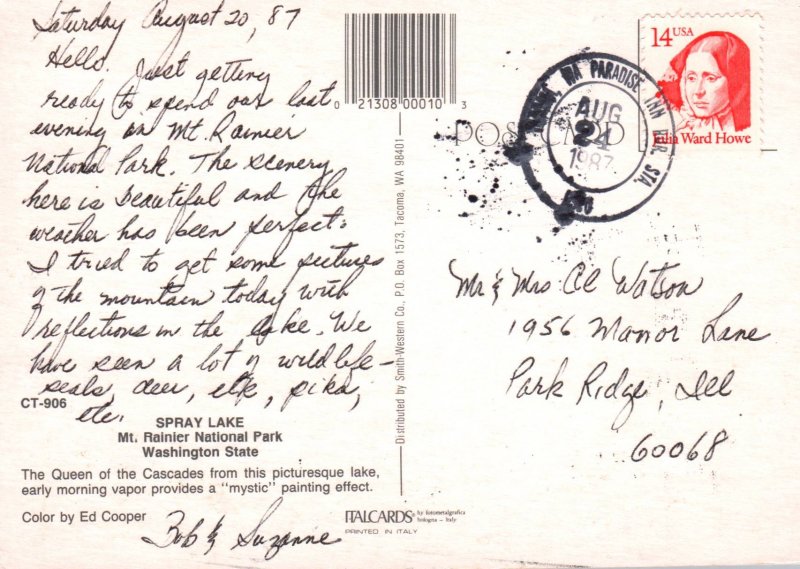 Saturday August 20, '87
Hello. Just getting
ready to spend our last
evening in Mt. Rainier
National Park. The scenery
here is beautiful and the
weather has been perfect.
I tried to get some pictures
of the mountain today with
reflections in the lake. We
have seen a lot of wildlife—
seals, deer, elk, pika,
etc.
CT-906
SPRAY LAKE
Mt. Rainier National Park
Washington State
The Queen of the Cascades from this picturesque lake,
early morning vapor provides a "mystic" painting effect.
Color by Ed Cooper
Bob & Suzanne
0 21308 00010 3
Distributed by Smith-Western Co., P.O. Box 1573, Tacoma, WA 98401
ITALCARDS by fotometalgrafica
bologna - Italy
PRINTED IN ITALY
POST CARD
WA PARADISE INN RUR. STA.
AUG
24
1987
14 USA
Julia Ward Howe
Mr & Mrs Al Watson
1956 Manor Lane
Park Ridge, Ill
60068